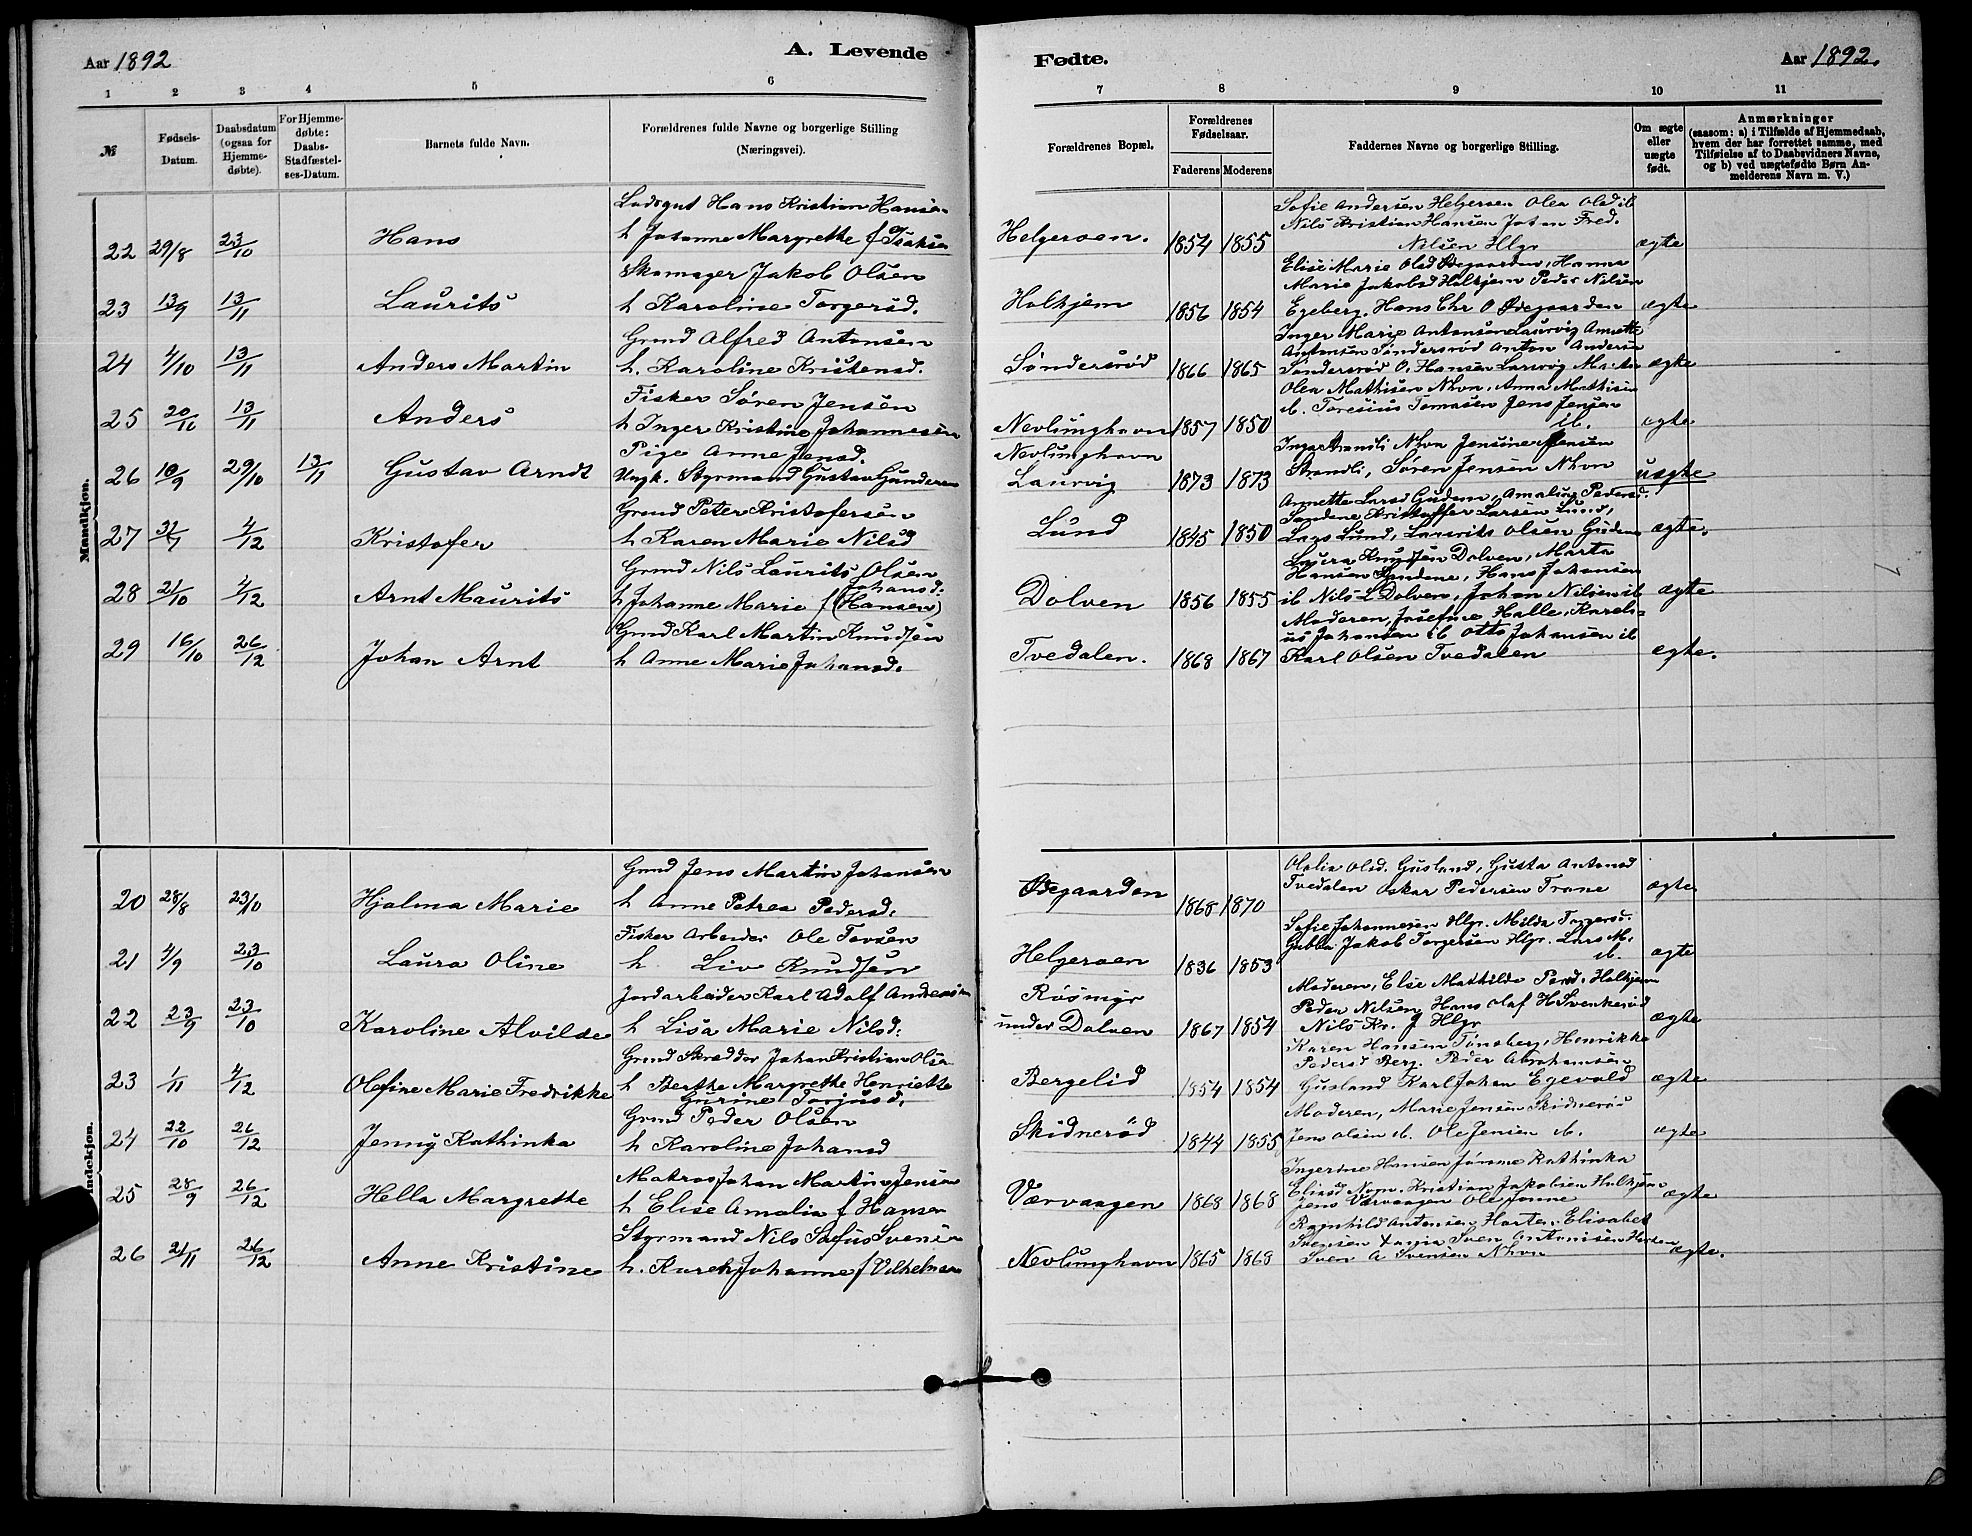 Aar 1892
A. Levende
Fødte.
Aar 1892.
1 2 3 4 5 6
7 8 9 10 11
№
Fødsels-Datum.
Daabsdatum (ogsaa for Hjemme-døbte).
For Hjemme-døbte: Daabs-Stadfæstel-ses-Datum.
Barnets fulde Navn.
Forældrenes fulde Navne og borgerlige Stilling (Næringsvei).
Forældrenes Bopæl.
Forældrenes Fødselsaar.
Faderens Moderens
Faddernes Navne og borgerlige Stilling.
Om ægte eller uægte født.
Anmærkninger
(saasom: a) i Tilfælde af Hjemmedaab,
hvem der har forrettet samme, med
Tilføielse af to Daabsvidners Navne,
og b) ved uægtefødte Børn An-
melderens Navn m. V.)
Mandkjøn.
Lodsgut Hans Kristian Hansen
Sofie Andersen Helgeroen Olea Olsd ib
Nils Kristian Hansen Johan Fred.
22 29/8 23/10 Hans h Johanne Margrethe f Isaksen Helgeroen. 1854 1855 Nilsen Hlgr ægte
Skomager Jakob Olsen
Elise Marie Olsd Ødegaarden, Hanna
Marie Jakobsd Holtjem Peder Nilsen
23 13/9 13/11 Laurits h Karoline Torgersd. Holhjem 1856 1854 Egeberg. Hans Chr O Ødegaarden ægte
Grmd Alfred Antonsen
Inger Marie Antonsen Laurvig Annette
Antonsen Søndersrød Anton Andersen
24 4/10 13/11 Anders Martin h. Karoline Kristensd. Søndersrød 1866 1865 Søndersrød O. Hansen Laurvig Martin ægte
Fisker Søren Jensen
Olea Mathisen Nhvn. Anna Mathisen
ib. Toresius Tomasen Jens Jensen
25 20/10 13/11 Anders h Inger Kristine Johannesen Nevlunghavn 1857 1850 ib. ægte
Pige Anne Jensd.
Nevlunghavn
Inga Strandli Nhvn Jensine Jensen
26 10/9 29/10 13/11 Gustav Arndt Ungk. Styrmand Gustav Gundersen Laurvig 1873 1873 Strandli, Søren Jensen Nhvn uægte
Grmd Peter Kristofersen
Annette Larsd Gudem, Amalius Pedersd.
Sandene Kristoffer Larsen Lund,
27 4/12 Kristofer h Karen Marie Nilsd Lund 1845 1850 Lars Lund, Laurits Olsen Gudem ægte.
Grmd Nils Laurits Olsen
Johansd.
Laura Knudsen Dolven, Marta
Hansen Sandene, Hans Johansen
28 21/10 4/12 Arnt Maurits h Johanne Marie f (Hansen) Dolven 1856 1855 ib Nils L Dolven, Johan Nilsen ib ægte
Grmd Karl Martin Knudsen
Moderen, Josefine Halle, Karels-
us Johansen ib Otto Johansen ib
29 16/10 26/12 Johan Arnt h Anne Marie Johansd. Tvedalen. 1868 1867 Karl Olsen Tvedalen ægte.
indekjøn.
Grmd Jens Martin Johansen
Olalia Olsd. Gusland, Gusta Antonsd
20 28/8 23/10 Hjalma Marie h Anne Petrea Pedersd. Ødegaarden 1868 1870 Tvedalen Oskar Pedersen Trane ægte
Fisker Arbeider Ole Tovsen
Sofie Johannesen Hlgr. Milda Torgersd.
Gubba Jakob Torgersen Hlgr. Lars M.
21 4/9 23/10 Laura Oline h Liv Knudsen Helgeroen 1836 1853 ib. ægte
Jordarbeider Karl Adolf Andersen
Røsmyr
Moderen, Else Mathilde Pedsd. Holhjem
Peder Nilsen, Hans Olaf H Svenkerød
22 23/9 23/10 Karoline Alvilde h Lisa Marie Nilsd. under Dolven 1867 1854 Nils Kr. J Hlgr ægte
Grmd Skrædder Johan Kristian Olsen
Karen Hansen Tønsberg, Henrikke
Pedersd Berg. Peder Abrahamsen
23 1/11 4/12 Olefine Marie Fredrikke h Berthe Margrethe Henriette Bergelid 1854 1854 Gusland Karl Johan Egevold ægte
Gurine Torjusd.
Grmd Peder Olsen
Moderen, Marie Jensen Skidnerød
24 22/10 26/12 Jenny Kathinka h Karoline Johansd Skidnerød 1844 1855 Jens Olsen ib. Ole Jensen ib. ægte
Matros Johan Martin Jensen
Ingerine Hansen Kathinka
Eliasd Kristian Jakobsen Holhjem
25 28/9 26/12 Hella Margrethe h Elise Amalia f Hansen Værvaagen 1868 1868 Jens Værvaagen Ole ægte
Styrmand Nils Sofus Svensen
Ragnhild Antonsen Harten. Elisabet
Svensen Sven Antonisen
26 21/11 26/12 Anne Kristine h. Karen Johanne f Vilhelmsen Nevlunghavn 1865 1868 Sven A Svensen Nhvn ægte.